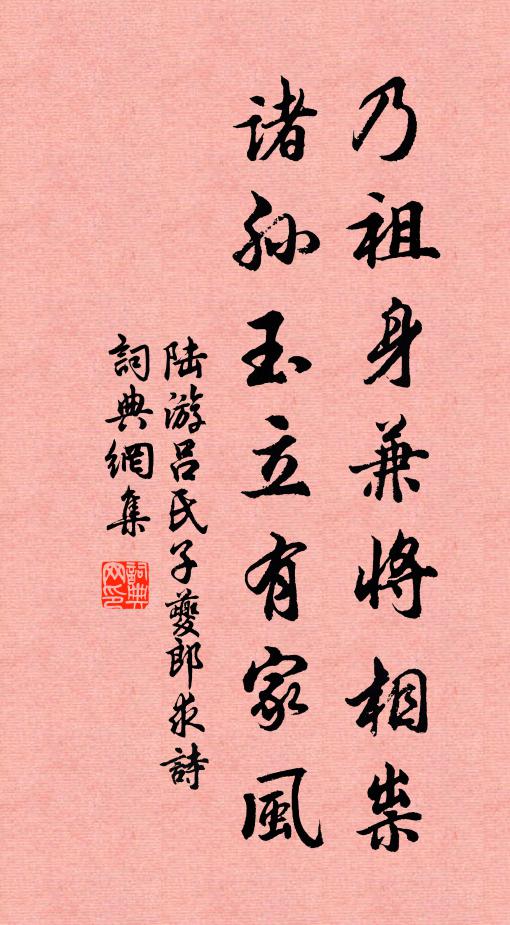 乃祖身兼將相崇
諸孫玉立有家風
陸游呂氏子夔郎求詩
詞典網集
詞典網印